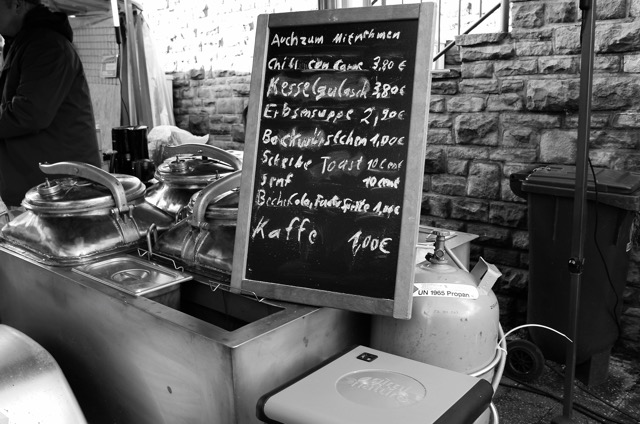 Auch zum Mitnehmen
Chili con Carne 3,80 €
Kesselgulasch 3,80€
Erbsensuppe 2,90€
Bockwürstchen 1,00€
Scheibe Toast 10 Cent
Senf 10 Cent
Becher Cola, Fanta, Sprite 1,00€
Kaffe 1,00€
UN 1965 Propan